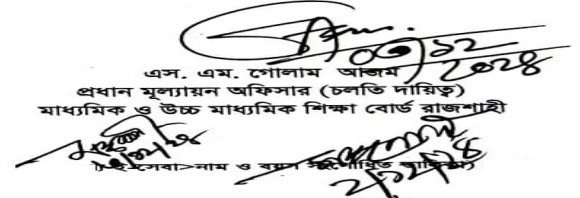 ০৩/১২
২০২৪
এস. এম. গোলাম আজম
প্রধান মূল্যায়ন অফিসার (চলতি দায়িত্ব)
মাধ্যমিক ও উচ্চ মাধ্যমিক শিক্ষা বোর্ড রাজশাহী
সেবা>নাম ও বয়স
২/১২/২৪